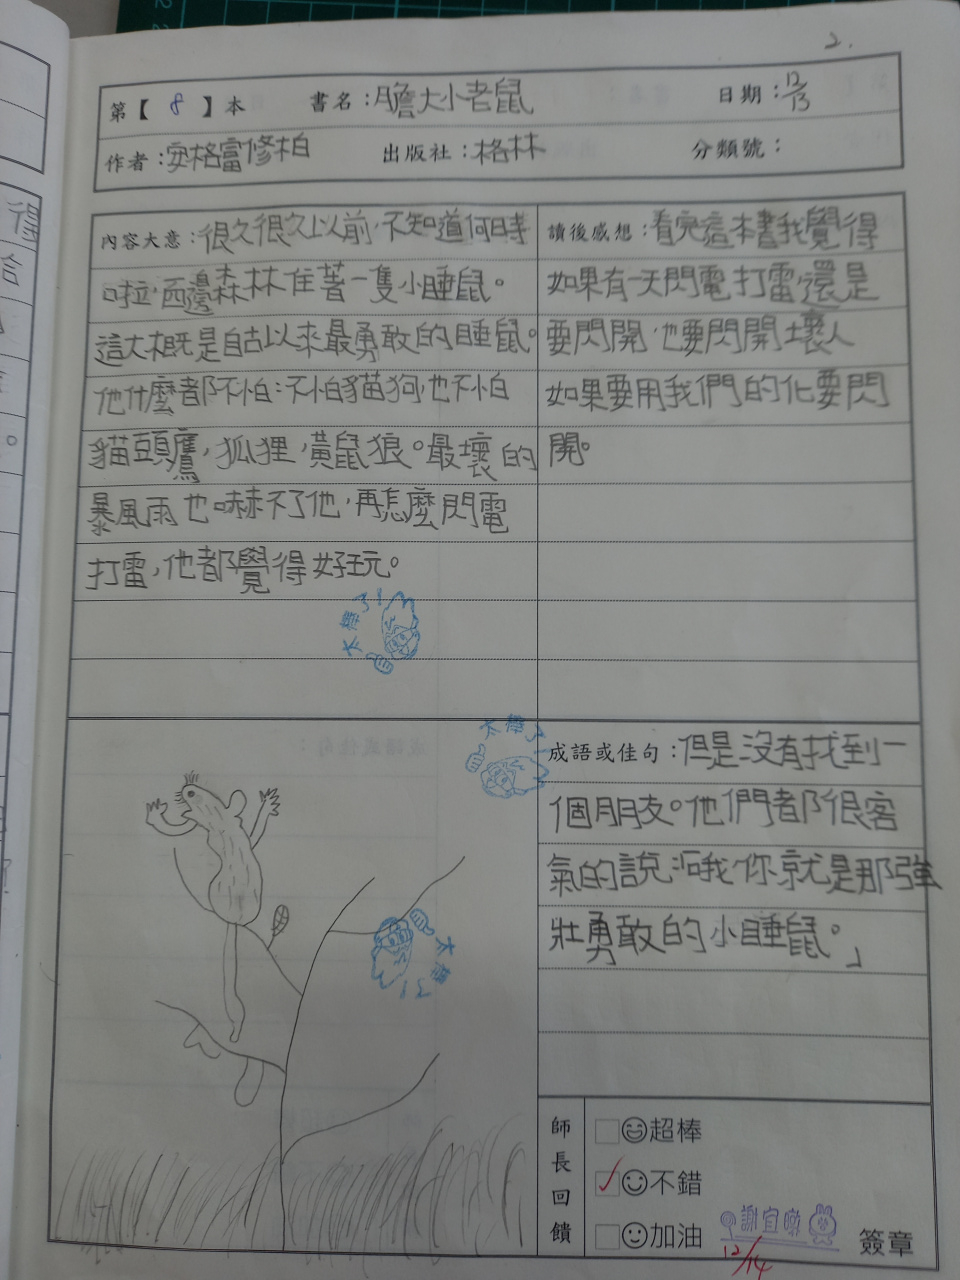 2.
第【 8 】本 書名：膽大小老鼠 日期：12/13
作者：安格富修柏 出版社：格林 分類號：
內容大意：很久很久以前，不知道何時
啦，西邊森林住著一隻小睡鼠。
這大概是自古以來最勇敢的睡鼠。
他什麼都不怕：不怕貓狗，也不怕
貓頭鷹，狐狸，黃鼠狼。最壞的
暴風雨也嚇不了他，再怎麼閃電
打雷，他都覺得好玩。
太棒了！
讀後感想：看完這本書我覺得
如果有一天閃電打雷，還是
要閃開，也要閃開壞人
如果要用我們的化要閃
開。
太棒了
太棒了！
成語或佳句：但是沒有找到一
個朋友。他們都很客
氣的說：哦我你就是那強
壯勇敢的小睡鼠。」
師長回饋
超棒
✓ 不錯
加油
謝宜
12/14
簽章
得